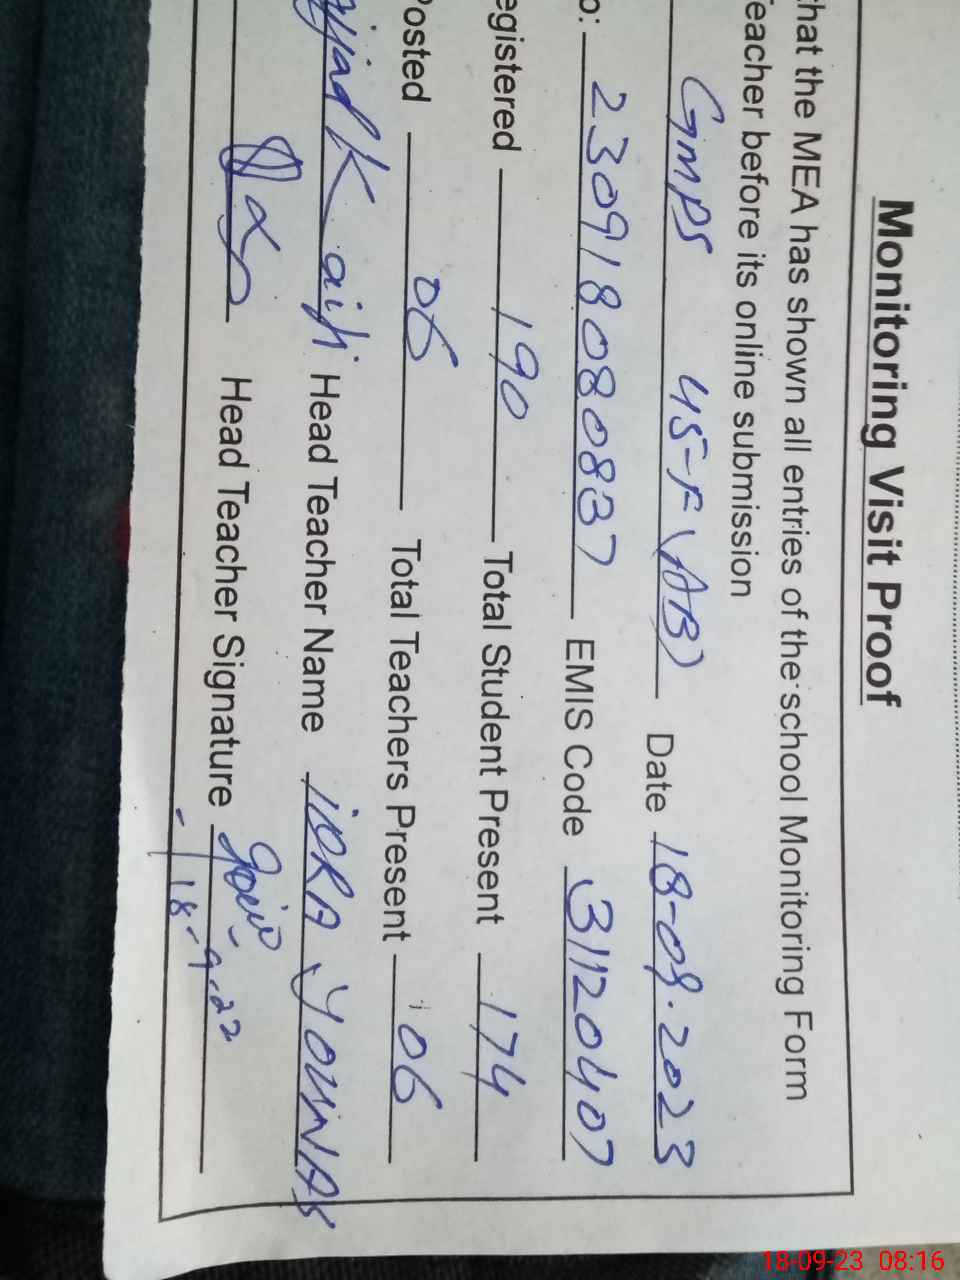 Monitoring Visit Proof
that the MEA has shown all entries of the school Monitoring Form
Teacher before its online submission
GMPS 45-F (AB) Date 18-09.2023
o: 230918080837 EMIS Code 31120407
egistered 190 Total Student Present 174
Posted 06 Total Teachers Present 06
Head Teacher Name IQRA YOUNAS
Head Teacher Signature
18-9-22
18-09-23 08:16